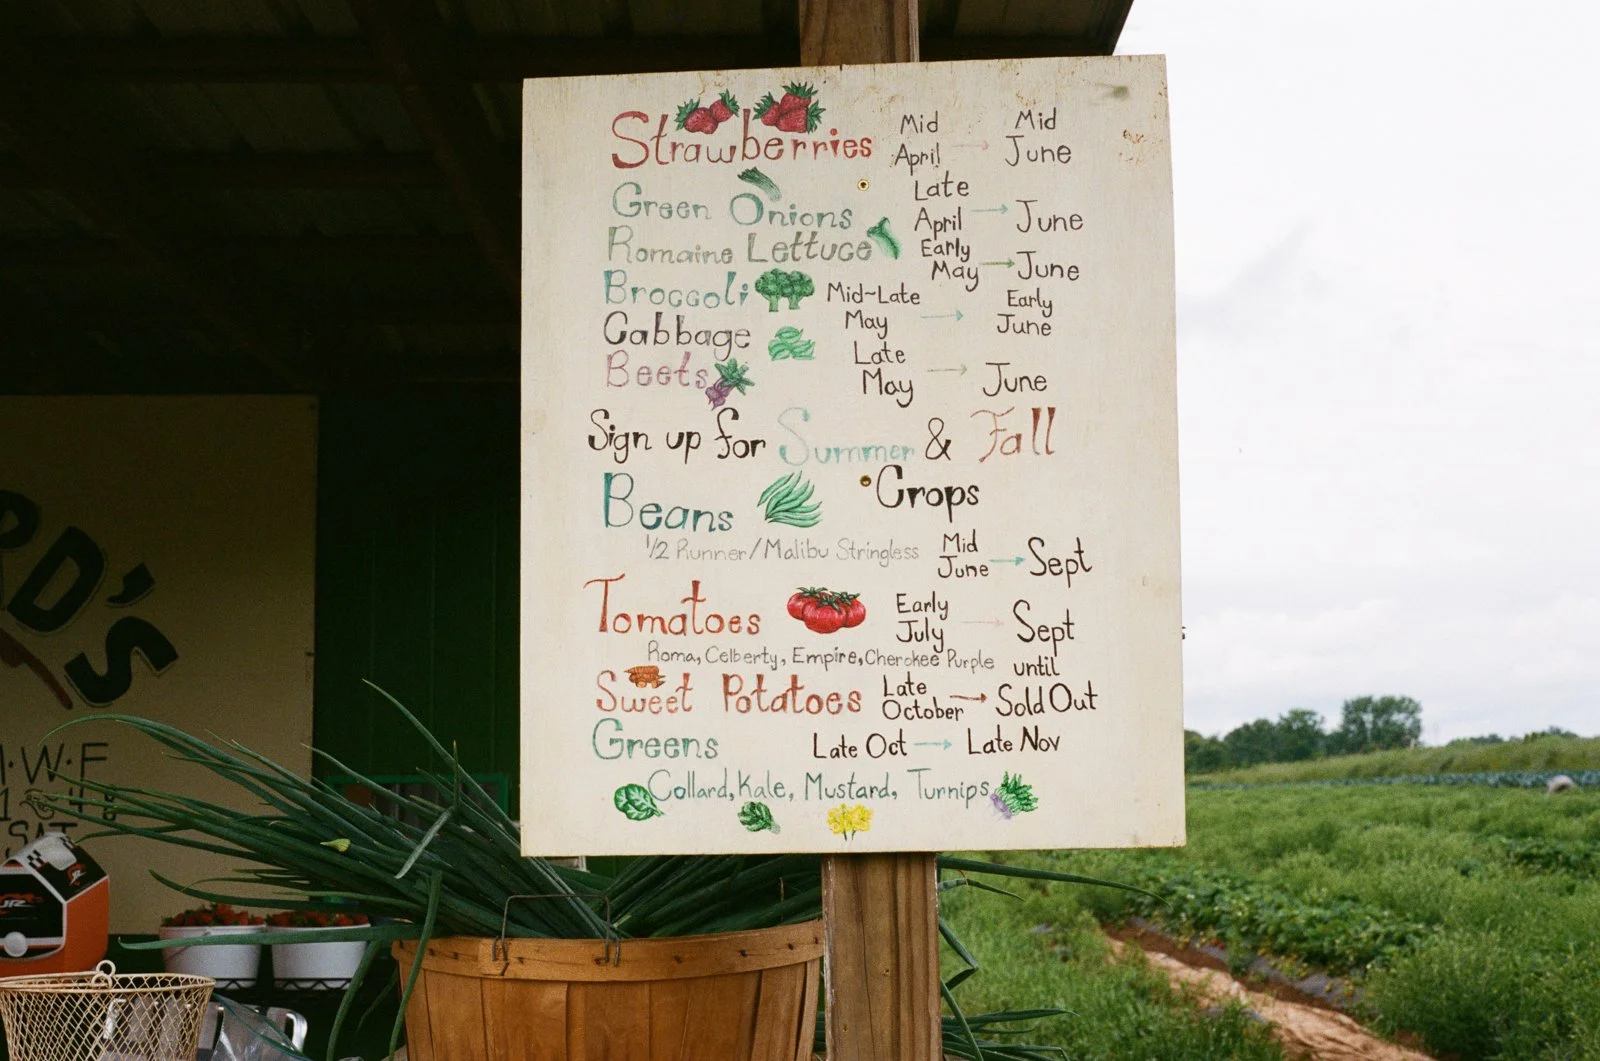 Strawberries Mid April → Mid June
Green Onions Late April → June
Romaine Lettuce Early May → June
Broccoli Mid~Late May → Early June
Cabbage
Beets Late May → June
Sign up for Summer & Fall
Crops
Beans
1/2 Runner/Malibu Stringless Mid June → Sept
Tomatoes Early July → Sept
Roma, Celberty, Empire, Cherokee Purple
Sweet Potatoes Late October → until Sold Out
Greens Late Oct → Late Nov
Collard, Kale, Mustard, Turnips
RD'S
W·F
SAT
JR